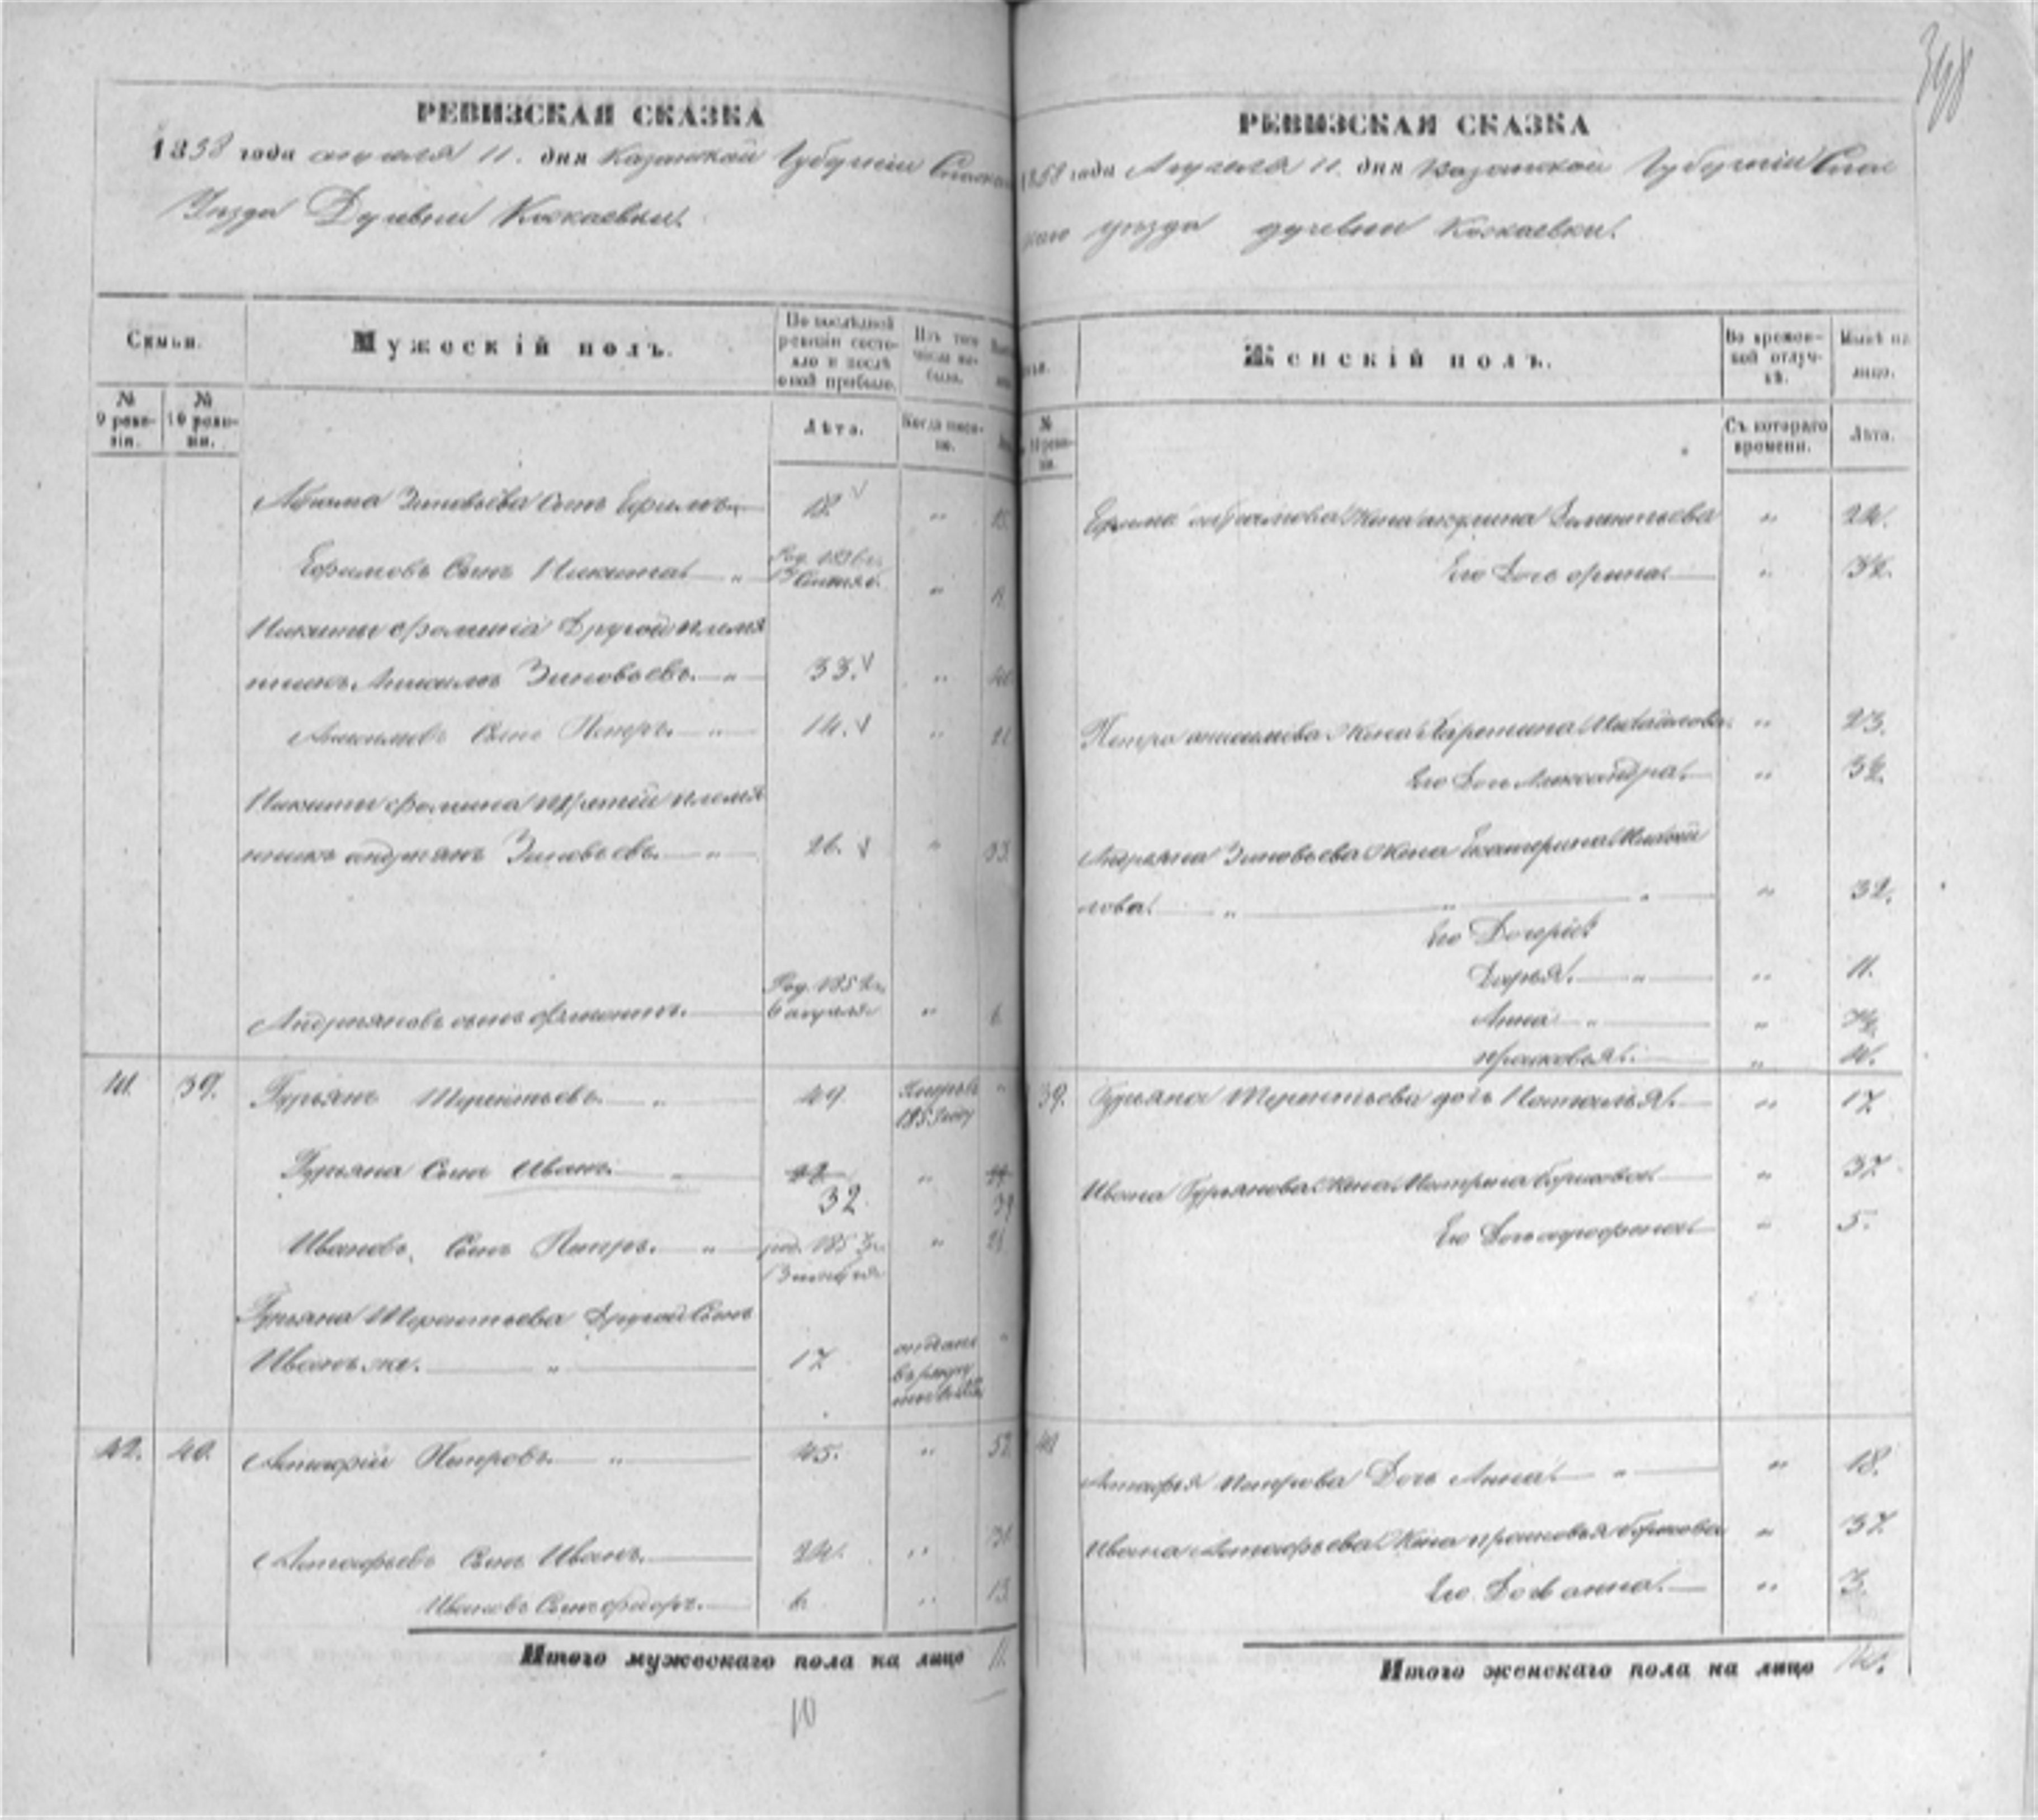 РЕВИЗСКАЯ СКАЗКА
1858 года апреля 11. дня Казанской Губернии Спаскаго
Уезда Деревни Кожаевки.
Семьи.
Мужескій полъ.
По послѣдней ревизіи состояло и послѣ оной прибыло.
Изъ того числа выбыло.
№ 9 ревизіи.
№ 10 ревизіи.
Лѣта.
Когда именно.
Абрама Зиновьева Сынъ Ефимъ 18. "
Ефимовъ Сынъ Никита " Род. 1856 г. "
Никиты Фомина Другой племя
нникъ Анисимъ Зиновьевъ. " 33. "
Анисимовъ Сынъ Петръ. " 14. "
Никиты Фомина третій племя
нникъ андреянъ Зиновьевъ. " 26. " 33.
Андреяновъ сынъ Род. 1852 г. 6 апреля " 6.
41. 39. Гурьянъ Терентьевъ. " 49 1853 году "
Гурьяна Сынъ Иванъ. 32. " 39
Ивановъ Сынъ Петръ. " род. 185 "
Гурьяна Терентьева Другой Сынъ
Иванъ же. " 17 отданъ в рекруты "
42. 40. Астафій Петровъ. " 45. " 52.
Астафьевъ Сынъ Иванъ. 24. " 31
Ивановъ Сынъ Федоръ. 6. " 13.
Итого мужескаго пола на лицо 11.
10
348
РЕВИЗСКАЯ СКАЗКА
1858 года Апреля 11. дня Казанской Губерніи Спас
каго уезда деревни Кожаевки.
Женскій полъ.
Во временной отлучкѣ.
Нынѣ на лицо.
Съ котораго времени.
Лѣта.
Ефима абрамова Жена акулина " 24.
Его Дочь орина. "
Петра анисимова Жена Харетина Михайлова. " 23.
Его Дочь Александра. "
Андреяна Зиновьева Жена Екатерина Михай
лова. " " " " 32.
Его Дочери:
Дарья. " " 11.
Анна " "
прасковья. " 4.
39. Гурьяна Терентьева дочь Наталья. " 17
Ивана Гурьянова Жена Матрена Борисова. " 37
Его Дочь " 5.
40 Астафья Петрова Дочь Анна. " " 18.
Ивана Астафьева Жена прасковья Борисова " 37
Его Дочь анна. " 3.
Итого женскаго пола на лицо 14.